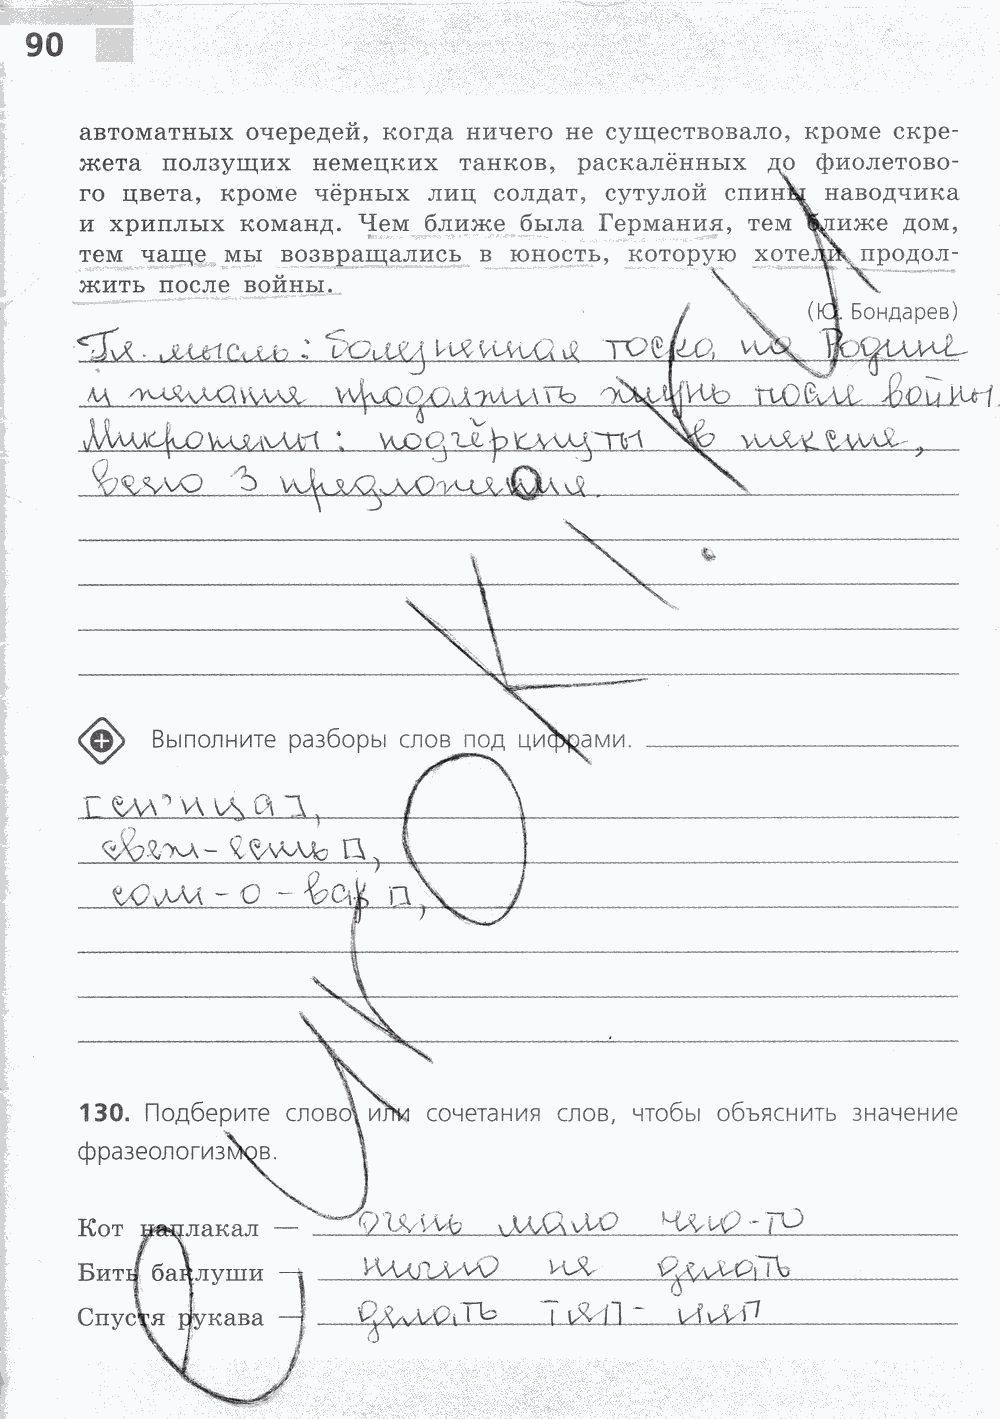 90
автоматных очередей, когда ничего не существовало, кроме скре-
жета ползущих немецких танков, раскалённых до фиолетово-
го цвета, кроме чёрных лиц солдат, сутулой спины наводчика
и хриплых команд. Чем ближе была Германия, тем ближе дом,
тем чаще мы возвращались в юность, которую хотели продол-
жить после войны.
(Ю. Бондарев)
Гл. мысль: болезненная тоска по Родине
и желание продолжить жизнь после войны.
Микротемы: подчёркнуты в тексте,
всего 3 предложения.
Выполните разборы слов под цифрами.
свеж-есть □,
соли-о-вар □,
130. Подберите слово или сочетания слов, чтобы объяснить значение
фразеологизмов.
Кот наплакал — очень мало чего-то
Бить баклуши — ничего не делать
Спустя рукава — делать тяп-ляп